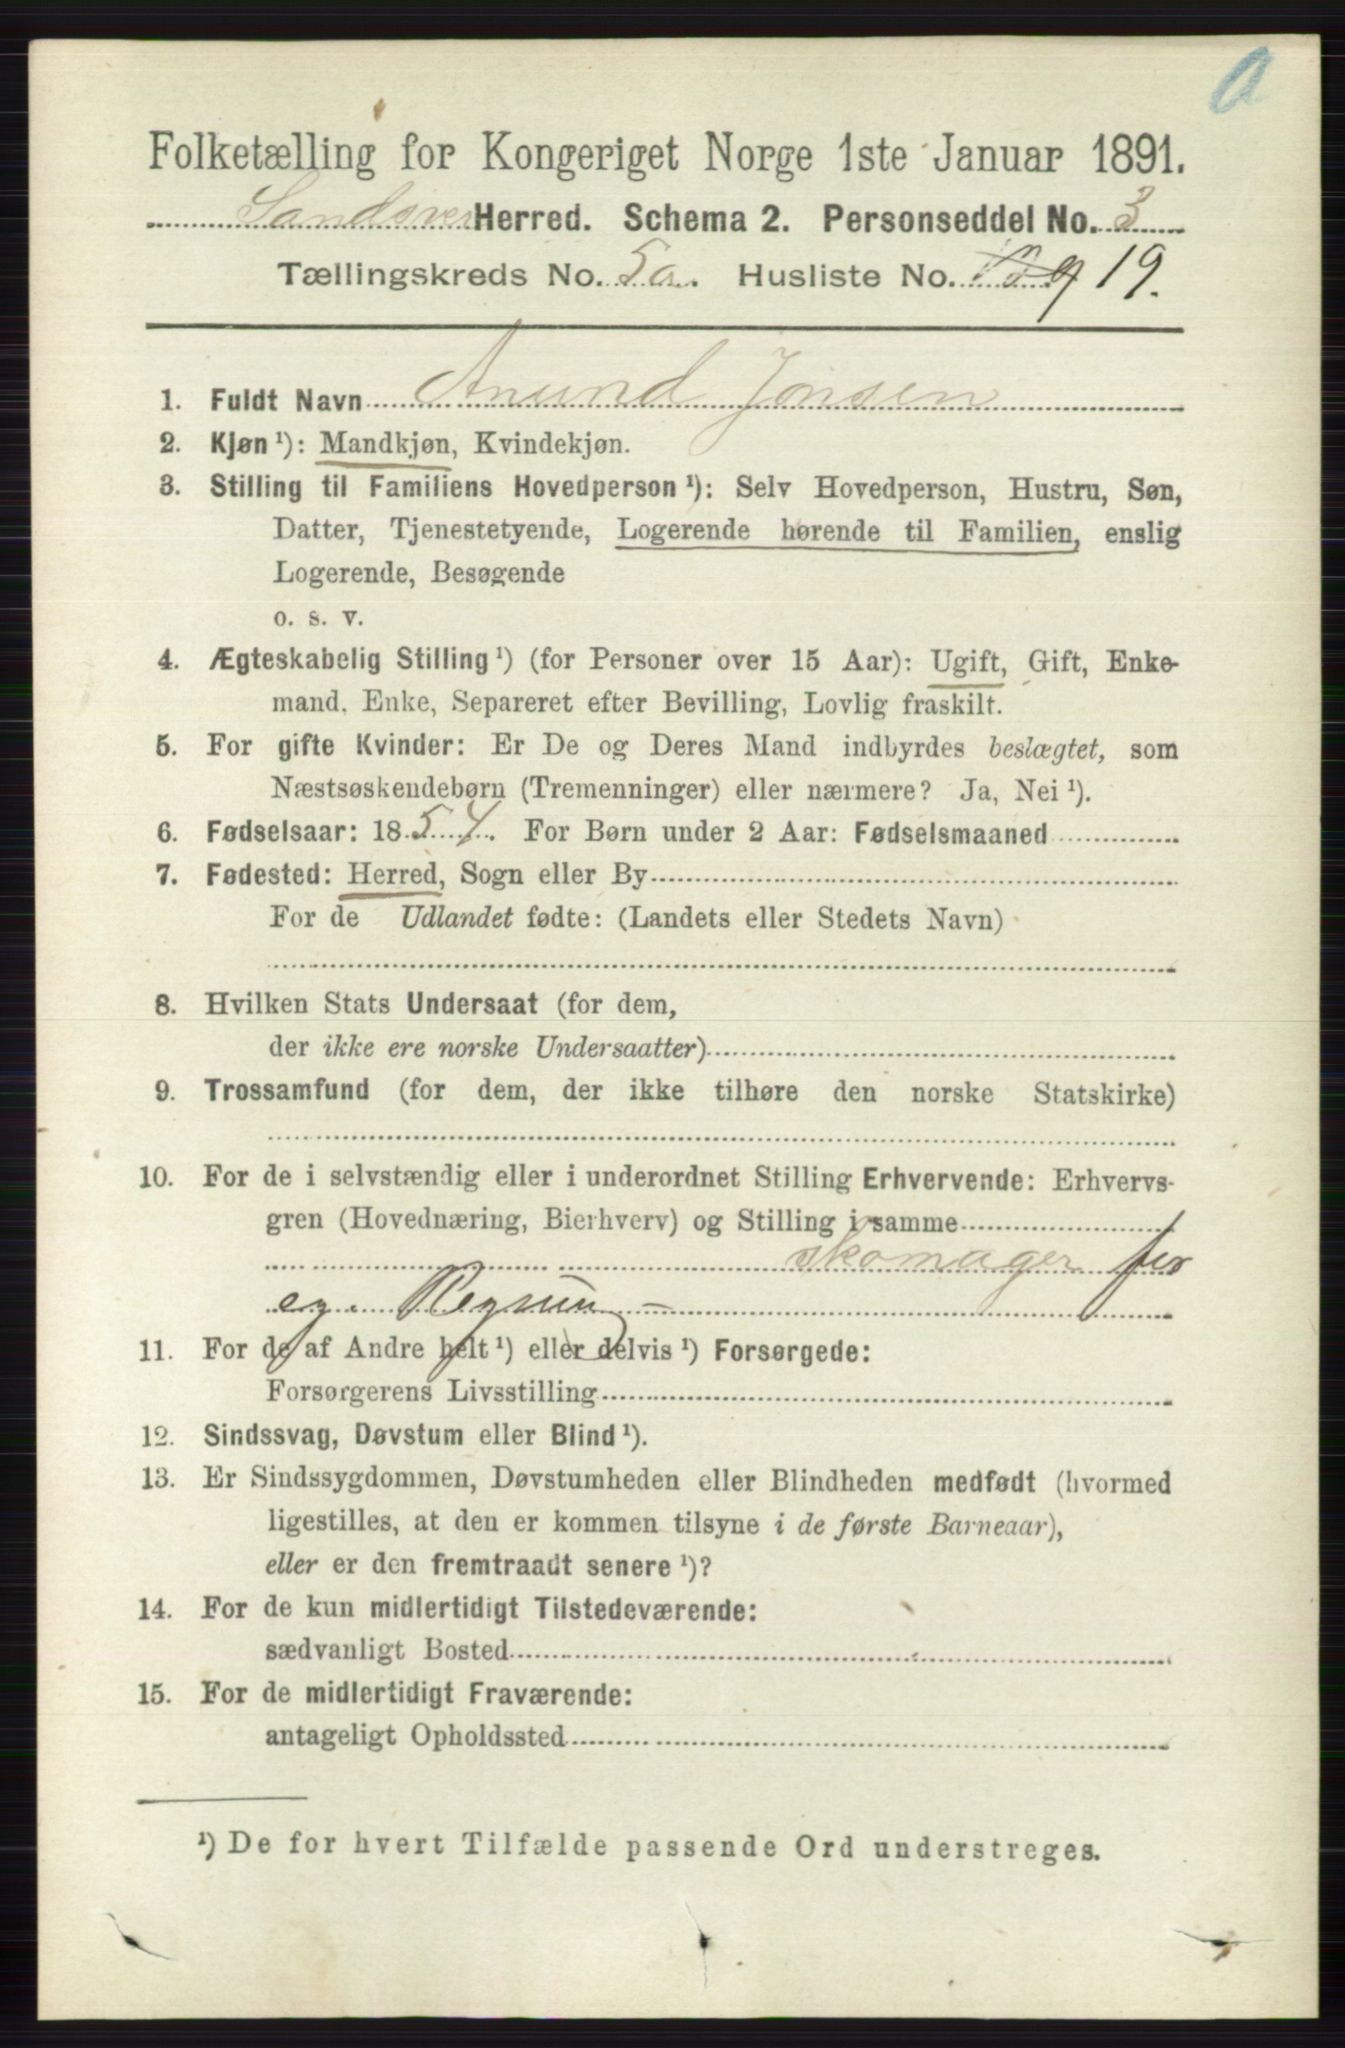 Folketælling for Kongeriget Norge 1ste Januar 1891.
Sandsver Herred. Schema 2. Personseddel No. 3
Tællingskreds No. 5a. Husliste No. 19.
1. Fuldt Navn Anund Jonsen
2. Kjøn ¹): Mandkjøn, Kvindekjøn.
3. Stilling til Familiens Hovedperson ¹): Selv Hovedperson, Hustru, Søn,
Datter, Tjenestetyende, Logerende hørende til Familien, enslig
Logerende, Besøgende
o. s. v.
4. Ægteskabelig Stilling ¹) (for Personer over 15 Aar): Ugift, Gift, Enke-
mand, Enke, Separeret efter Bevilling, Lovlig fraskilt.
5. For gifte Kvinder: Er De og Deres Mand indbyrdes beslægtet, som
Næstsøskendebørn (Tremenninger) eller nærmere? Ja, Nei ¹).
6. Fødselsaar: 1854. For Børn under 2 Aar: Fødselsmaaned
7. Fødested: Herred, Sogn eller By
For de Udlandet fødte: (Landets eller Stedets Navn)
8. Hvilken Stats Undersaat (for dem,
der ikke ere norske Undersaatter)
9. Trossamfund (for dem, der ikke tilhøre den norske Statskirke)
10. For de i selvstændig eller i underordnet Stilling Erhvervende: Erhvervs-
gren (Hovednæring, Bierhverv) og Stilling i samme
skomager for
eg. Regnun
11. For de af Andre helt ¹) eller delvis ¹) Forsørgede:
Forsørgerens Livsstilling
12. Sindssvag, Døvstum eller Blind ¹).
13. Er Sindssygdommen, Døvstumheden eller Blindheden medfødt (hvormed
ligestilles, at den er kommen tilsyne i de første Barneaar),
eller er den fremtraadt senere ¹)?
14. For de kun midlertidigt Tilstedeværende:
sædvanligt Bosted
15. For de midlertidigt Fraværende:
antageligt Opholdssted
¹) De for hvert Tilfælde passende Ord understreges.